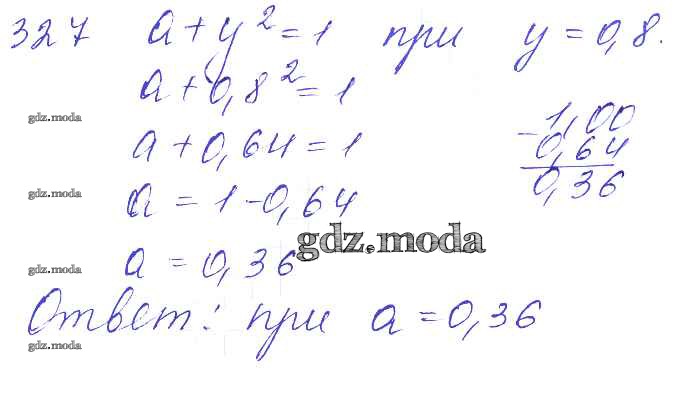 327 a + y² = 1 при y = 0,8.
a + 0,8² = 1
gdz.moda
a + 0,64 = 1
- 1,00
0,64
0,36
gdz.moda
a = 1 - 0,64
gdz.moda
gdz.moda
a = 0,36
Ответ: при a = 0,36
gdz.moda